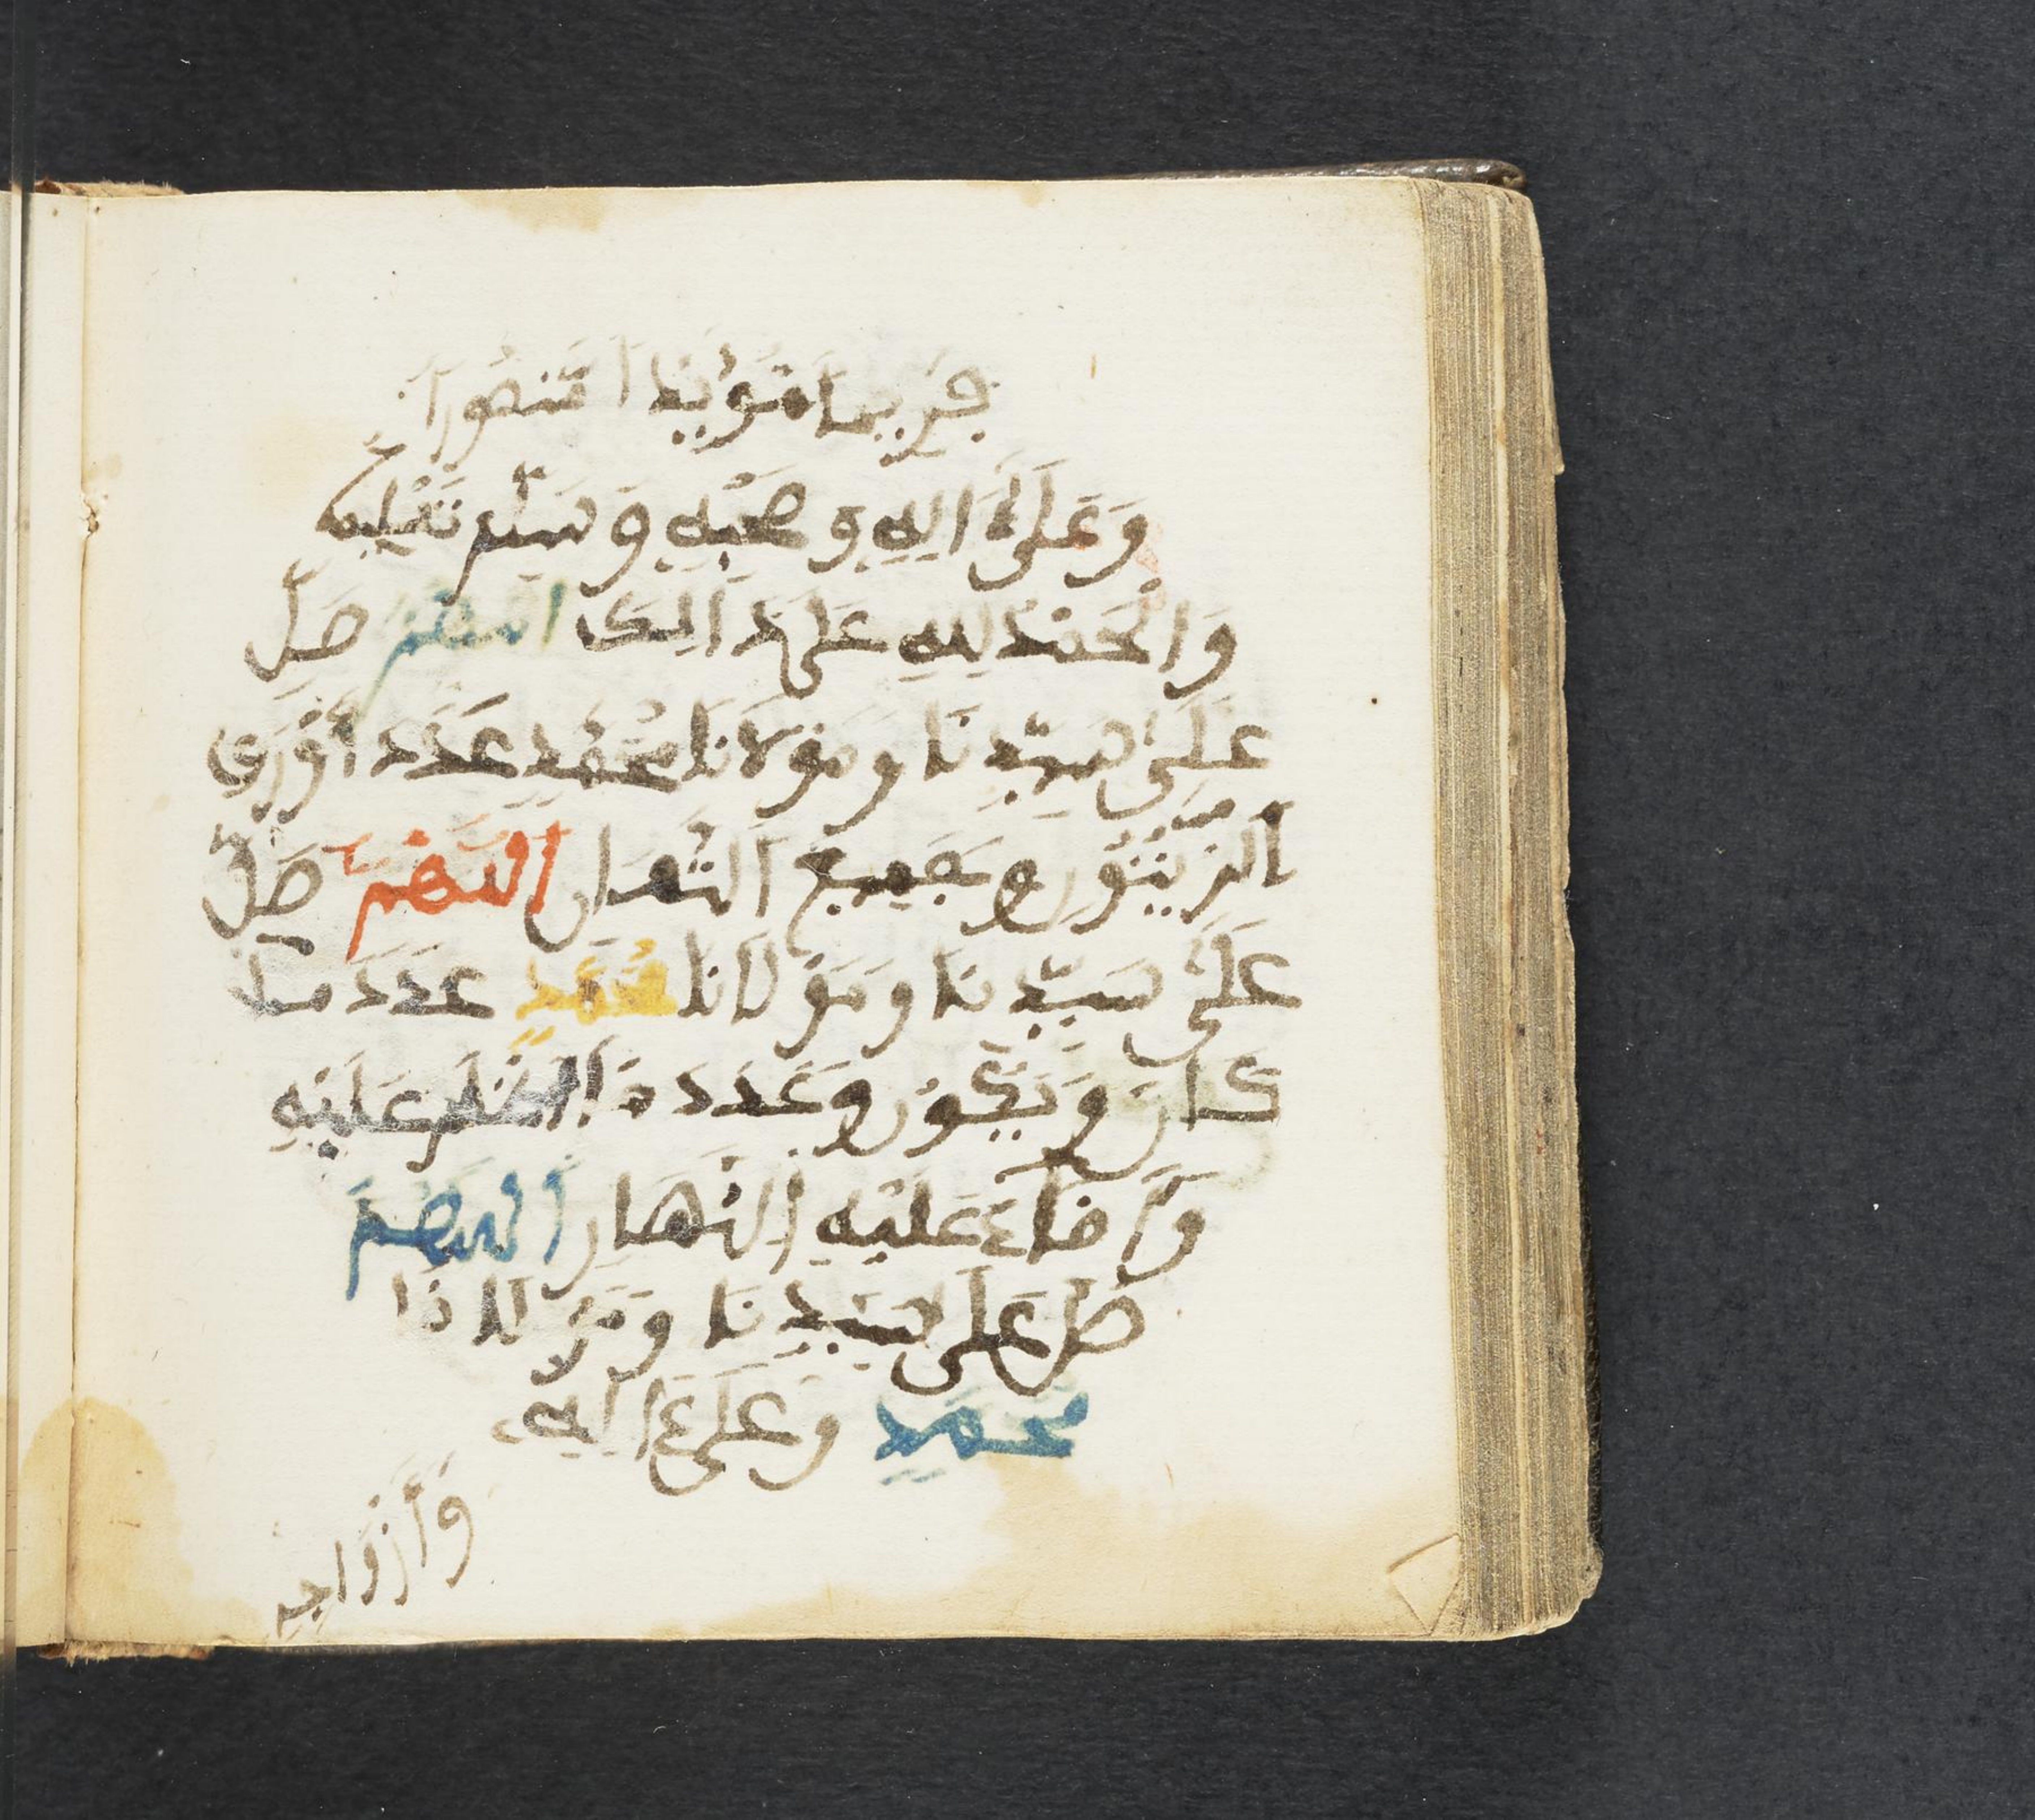 فَرِيباً مُؤَيَّداً مَّنصُوراً
وَعَلَىٰٓ ءَالِهِ وَصَحْبِهِ وَسَلِّمْ تَسْلِيما
وَالْحَمْدُ لِلهِ عَلَىٰ ذَالِكَ اللهُمَّ صَلِّ
عَلَىٰ سَيِّدِنَا وَمَوْلَانَا مُحَمَّدٍ عَدَدَ أَوْرَاقِ
الزَّيْتُونِ وَجَمِيعِ الثِّمَارِ اللَّهُمَّ صَلِّ
عَلَىٰ سَيِّدِنَا وَمَوْلَانَا مُحَمَّدٍ عَدَدَ مَا
كَانَ وَيَكُونُ وَعَدَدَ مَا أَظْلَمَ عَلَيْهِ
وَأَضَاءَ عَلَيْهِ النَّهَارُ اللَّهُمَّ
صَلِّ عَلَىٰ سَيِّدِنَا وَمَوْلَانَا
مُحَمَّدٍ وَعَلَىٰٓ ءَالِهِ
وَأَزْوَاجِهِ